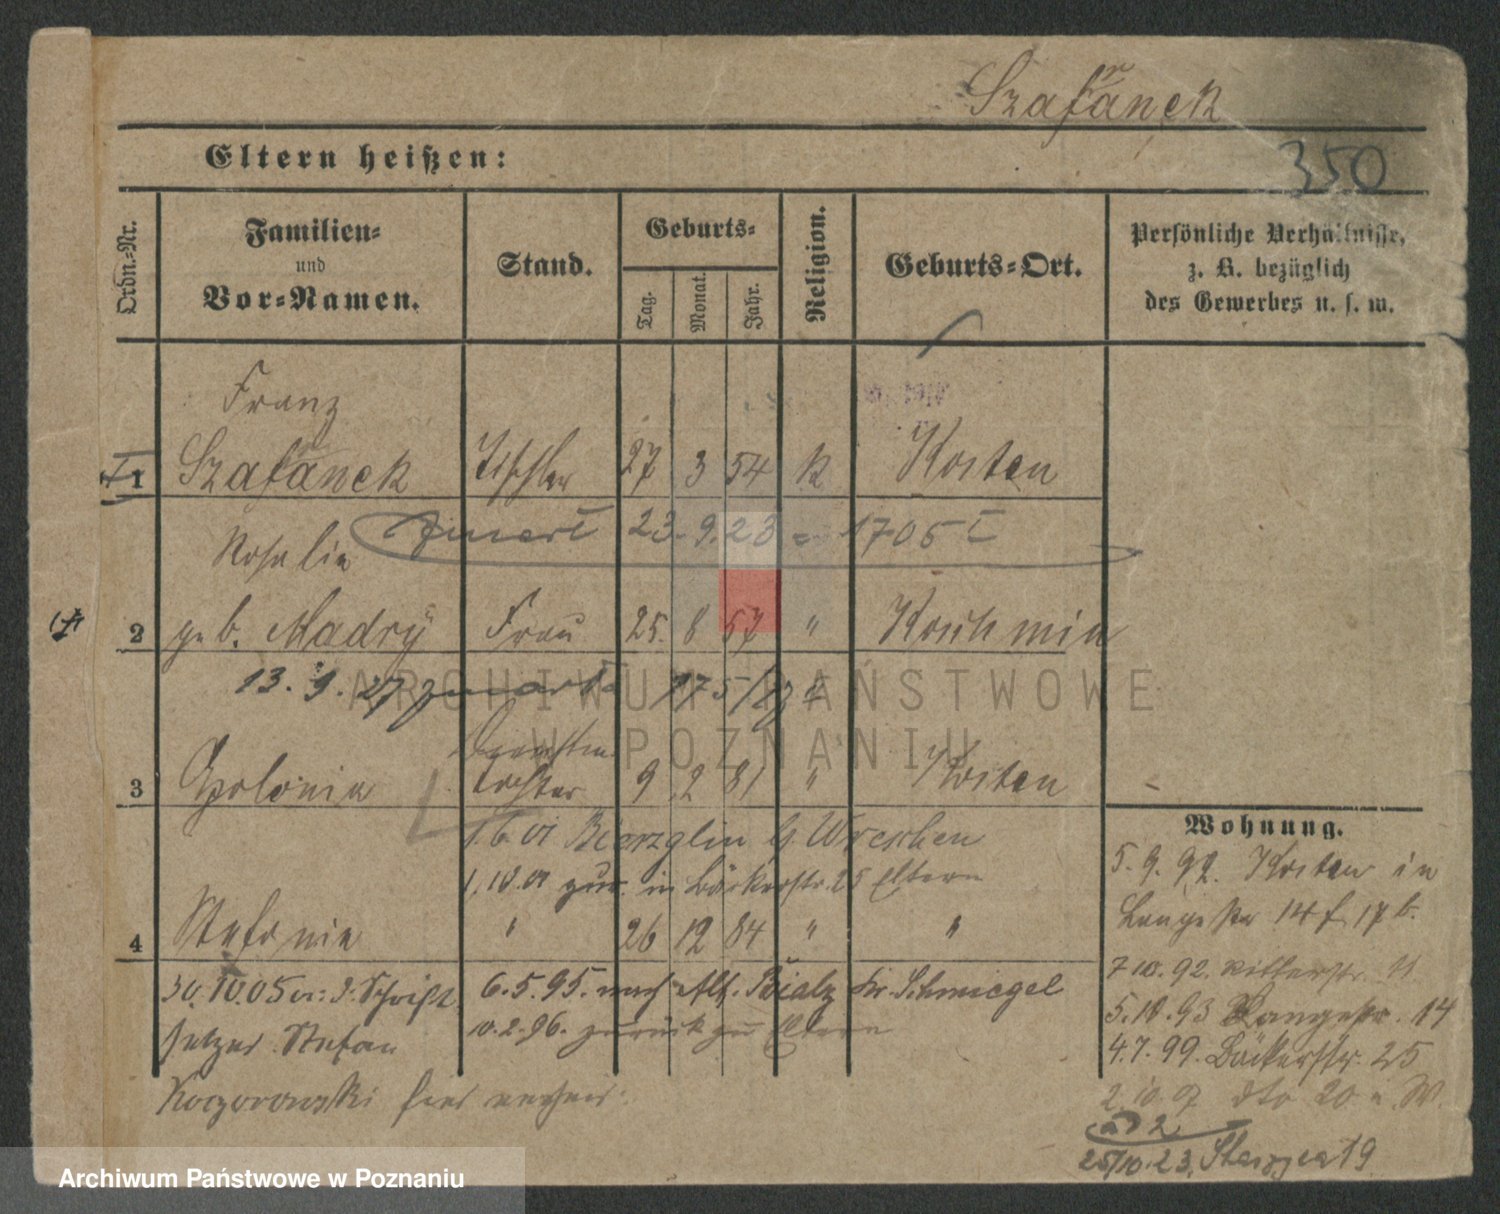 Szafranek
350
Eltern heißen:
Ordn.-Nr.
Familien-
und
Vor-Namen.
Stand.
Geburts-
Tag.
Monat.
Jahr.
Religion.
Geburts-Ort.
Persönliche Verhältnisse,
z. B. bezüglich
des Gewerbes u. s. w.
Franz
1 Szafranek Tischler 27 3 54 k Kosten
23.9.23 = 1705
Rosalie
2 geb. Madry Frau 25. 8 57 " Kosten
13. 9. 27
3 Apolonia tochter 9 2 81 " Kosten
1.6.01 G. Wreschen
1.10.01 zur. in Bäckerstr. 25 Eltern
4 Stefonia " 26 12 84 " "
30.10.05 Schrift
setzer Stefan
Koczorowski hier
6.5.95. nach Alt. Bialz Kr. Schmiegel
10.2.96. zurück zu Eltern
Wohnung.
5.9.92. Kosten in
Lange Str 14 f 17 b.
7 10. 92. Ritterstr. 11
5.10.93 Langestr. 14
4.7.99. Bäckerstr. 25
dto 20
25/10.23.
ARCHIWUM PAŃSTWOWE
W POZNANIU
Archiwum Państwowe w Poznaniu